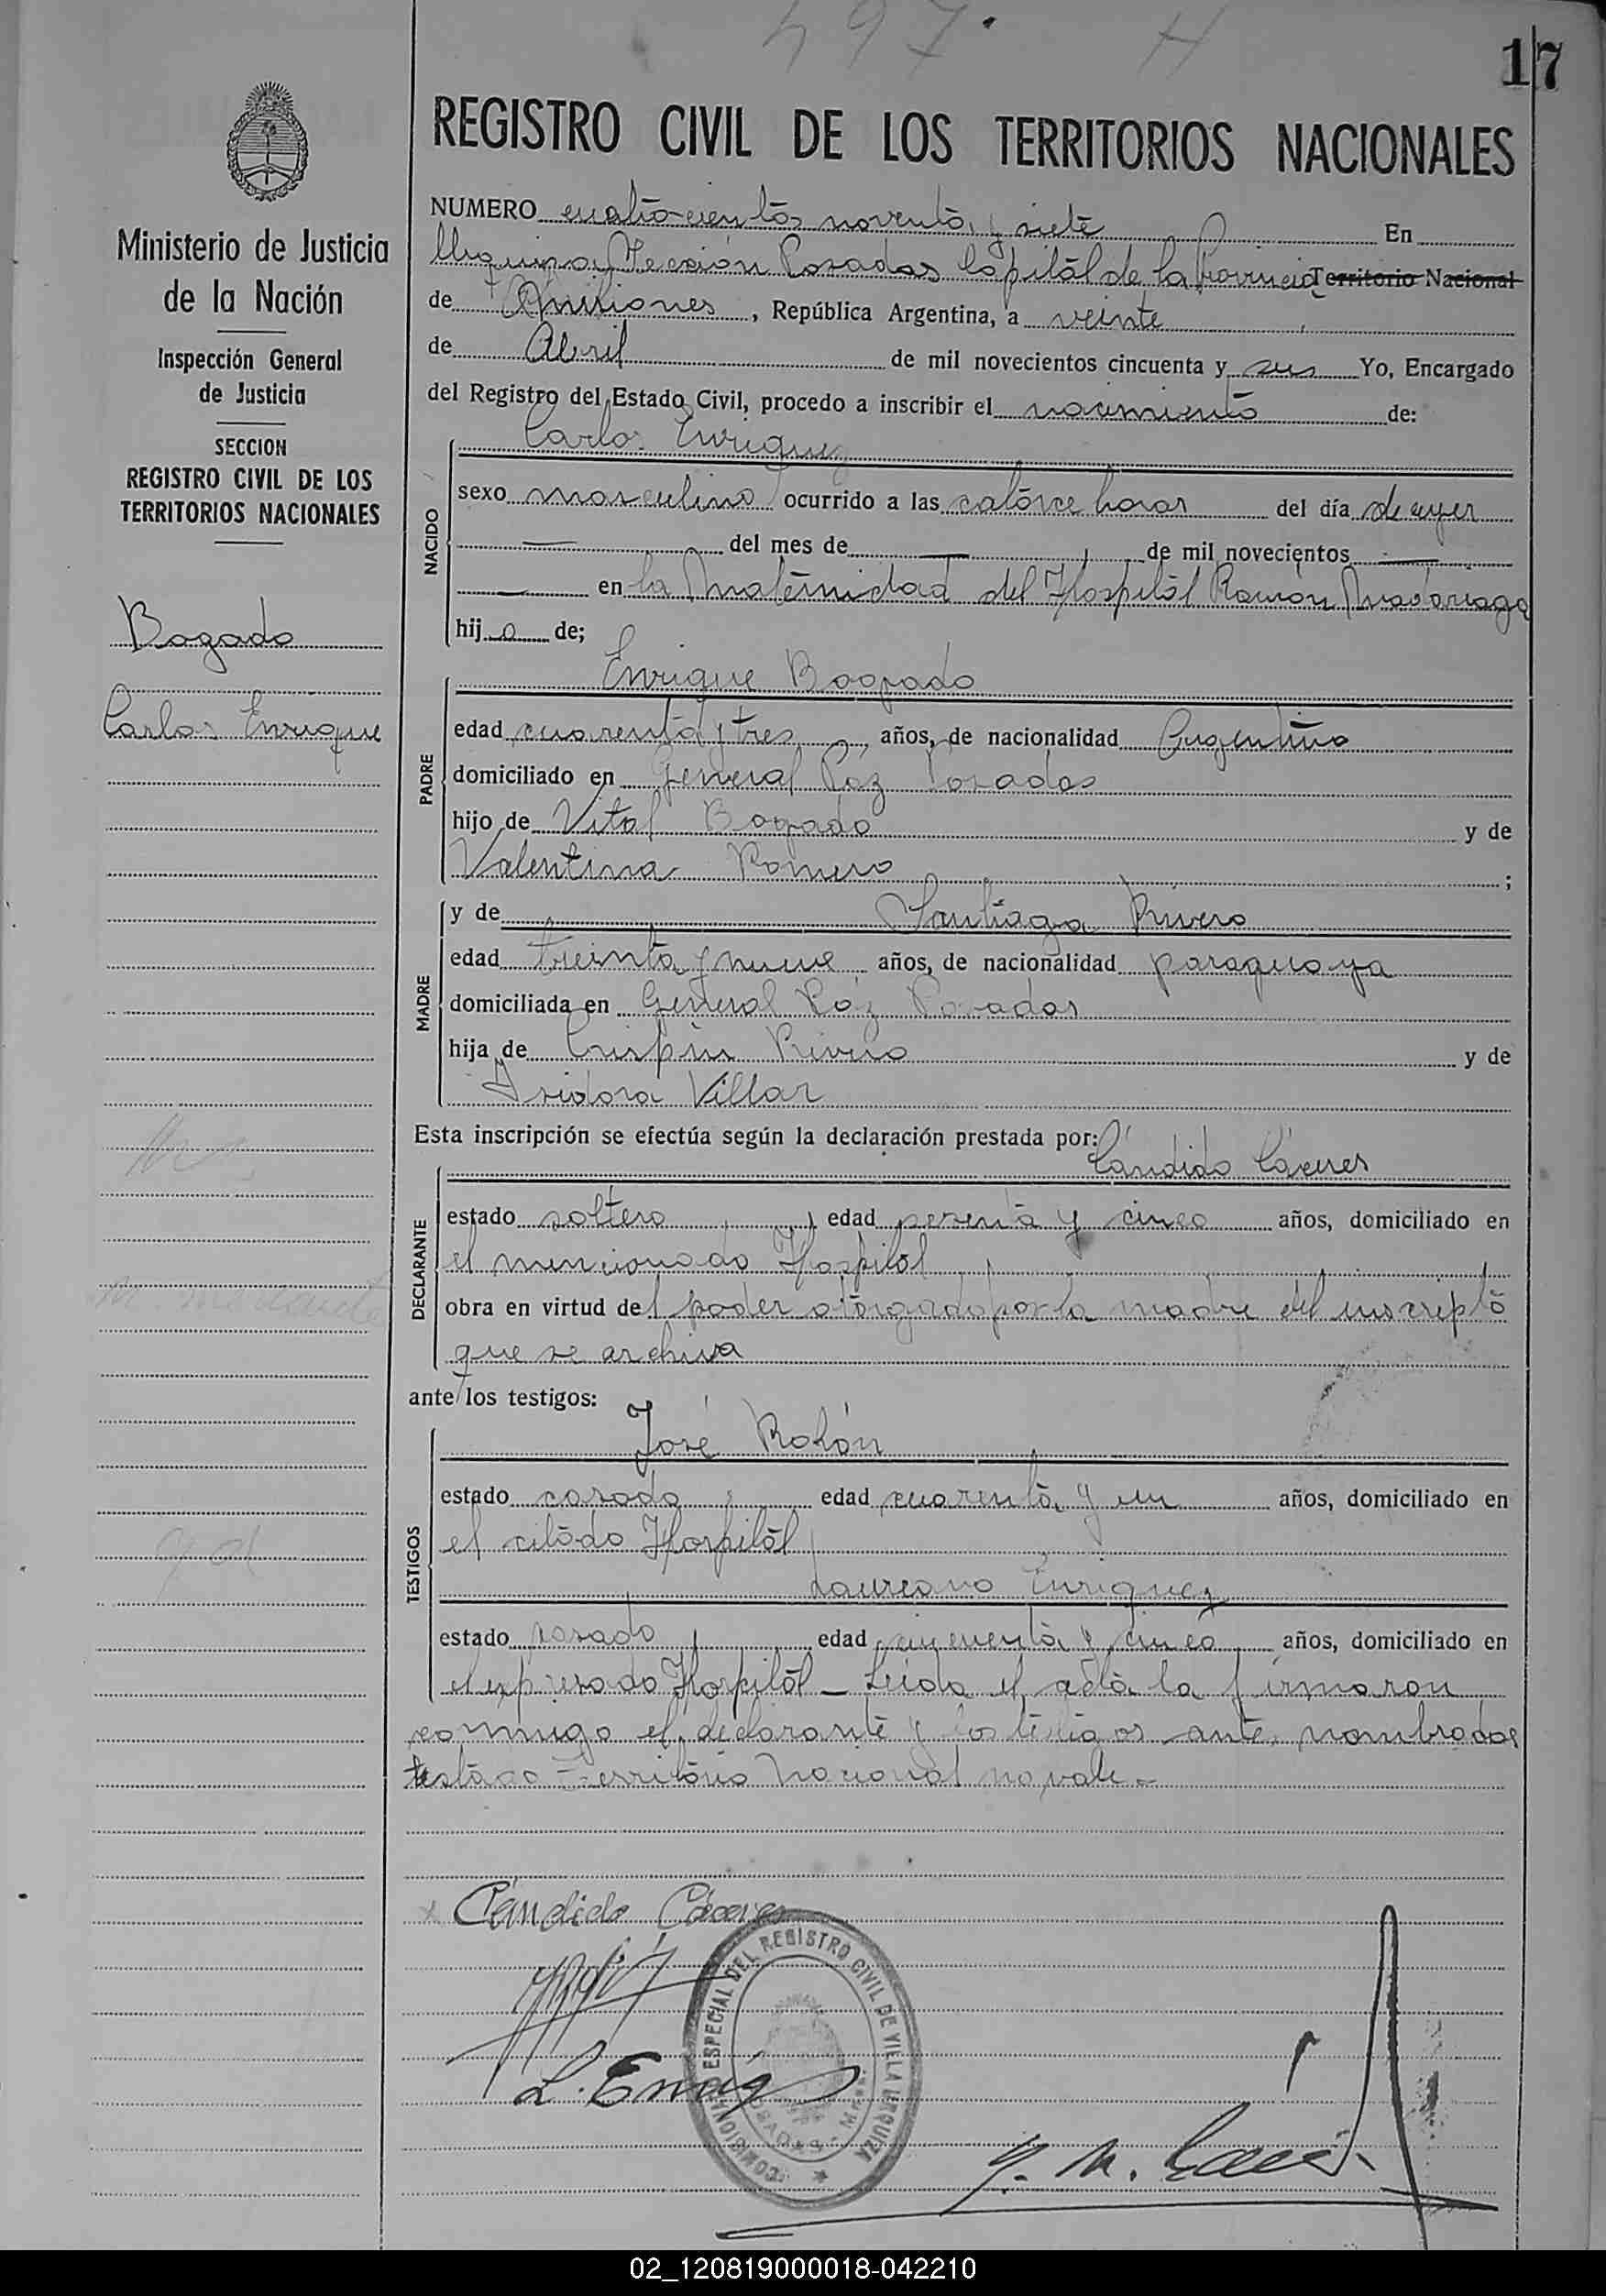 497. H
17
REGISTRO CIVIL DE LOS TERRITORIOS NACIONALES
Ministerio de Justicia
de la Nación
Inspección General
de Justicia
SECCION
REGISTRO CIVIL DE LOS
TERRITORIOS NACIONALES
Bogado
Carlos Enrique
NUMERO cuatrocientos noventa y siete En
Urquiza, Sección Posadas Capital de la Provincia Territorio Nacional
de Misiones, República Argentina, a veinte
de Abril de mil novecientos cincuenta y seis Yo, Encargado
del Registro del Estado Civil, procedo a inscribir el nacimiento de:
NACIDO
Carlos Enrique
sexo masculino ocurrido a las catorce horas del día de ayer
— del mes de — de mil novecientos —
— en la Maternidad del Hospital Ramón Madariaga
hijo de;
PADRE
Enrique Bogado
edad cuarenta y tres, años, de nacionalidad Argentino
domiciliado en General Páz Posadas
hijo de Vital Bogado y de
Valentina Romero ;
MADRE
y de Santiaga Rivero
edad treinta y nueve años, de nacionalidad paraguaya
domiciliada en General Páz Posadas
hija de Crispin Rivero y de
Isidora Villar
Esta inscripción se efectúa según la declaración prestada por:
DECLARANTE
Cándido Cáceres
estado soltero, edad sesenta y cinco años, domiciliado en
el mencionado Hospital
obra en virtud del poder otorgado por la madre del inscripto
que se archiva
ante los testigos:
TESTIGOS
José Rolón
estado casado, edad cuarenta y un años, domiciliado en
el citado Hospital
Laureano Enriquez
estado casado, edad cincuenta y cinco años, domiciliado en
el expresado Hospital — Leida el acta la firmaron
conmigo el declarante y los testigos ante nombrados
testado Territorio Nacional no vale.-
Cándido Cáceres
COMISION ESPECIAL DEL REGISTRO CIVIL DE VILLA URQUIZA
02_120819000018-042210